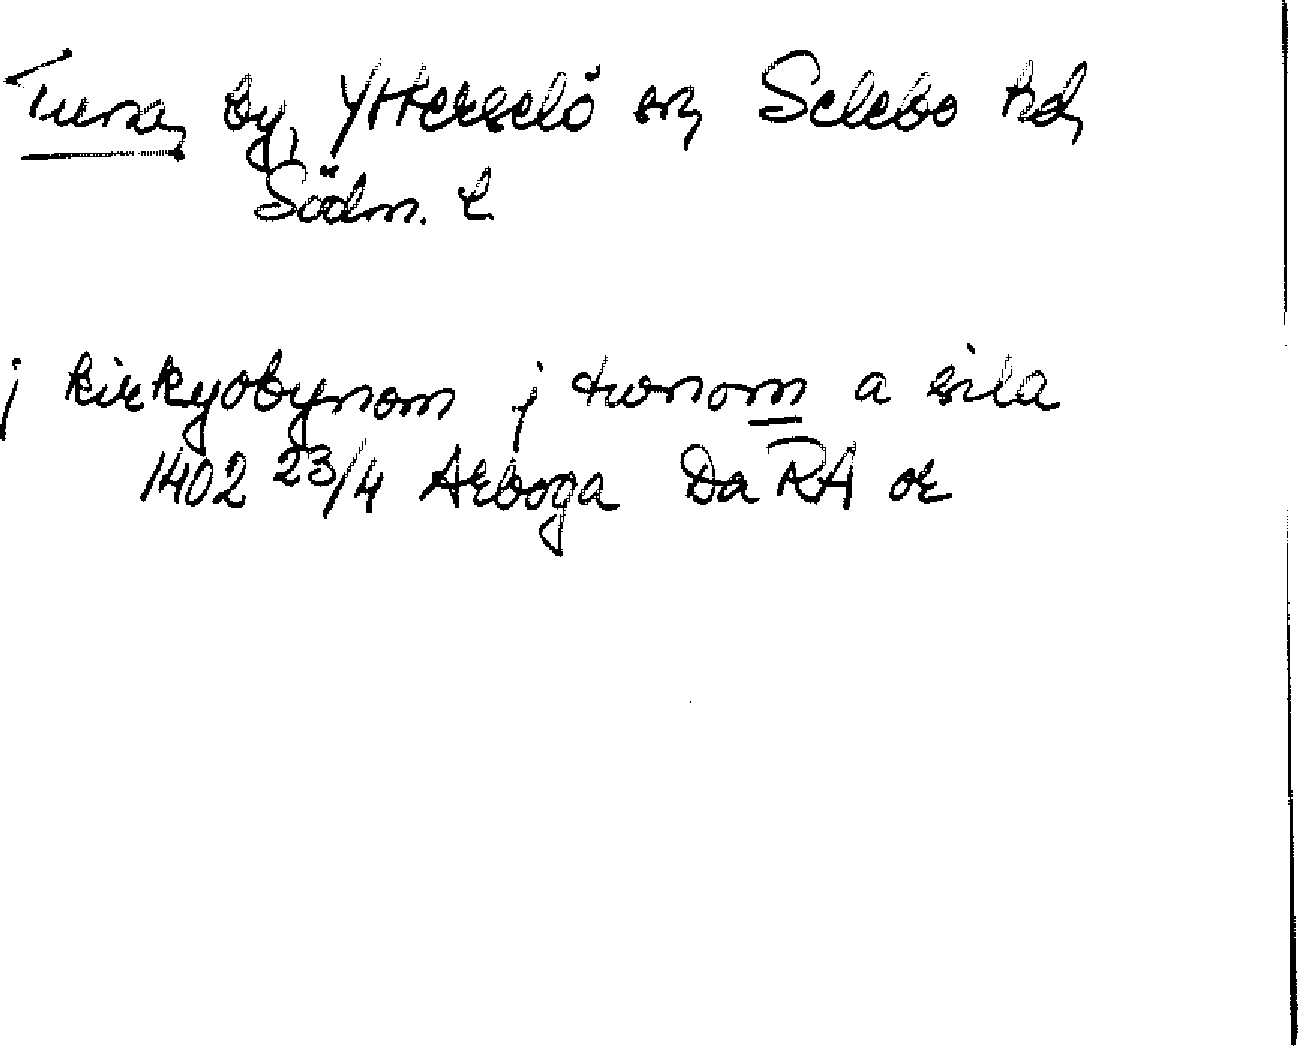 Tuna, by, Ytterselö sn, Selebo hd,
Södm. l.
j kirkyobynom j twnom a sila
1402 23/4 Arboga Da RA or